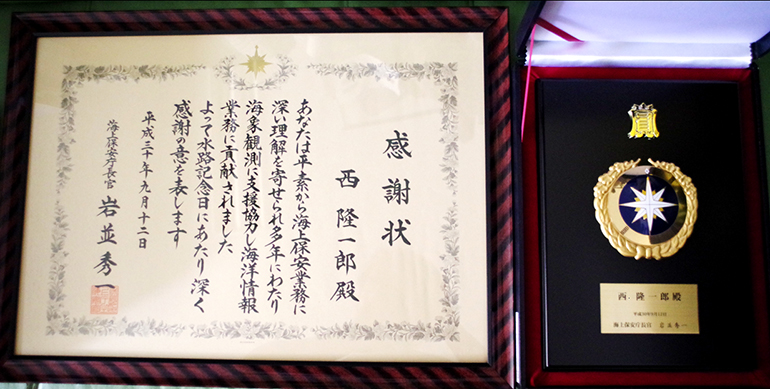 感謝状
西 隆一郎 殿
あなたは平素から海上保安業務に
深い理解を寄せられ多年にわたり
海象観測に支援協力し海洋情報
業務に貢献されました
よって水路記念日にあたり 深く
感謝の意を表します
平成三十年九月十二日
海上保安庁長官 岩並秀一
賞
西 隆一郎殿
平成30年9月12日
海上保安庁長官 岩並秀一